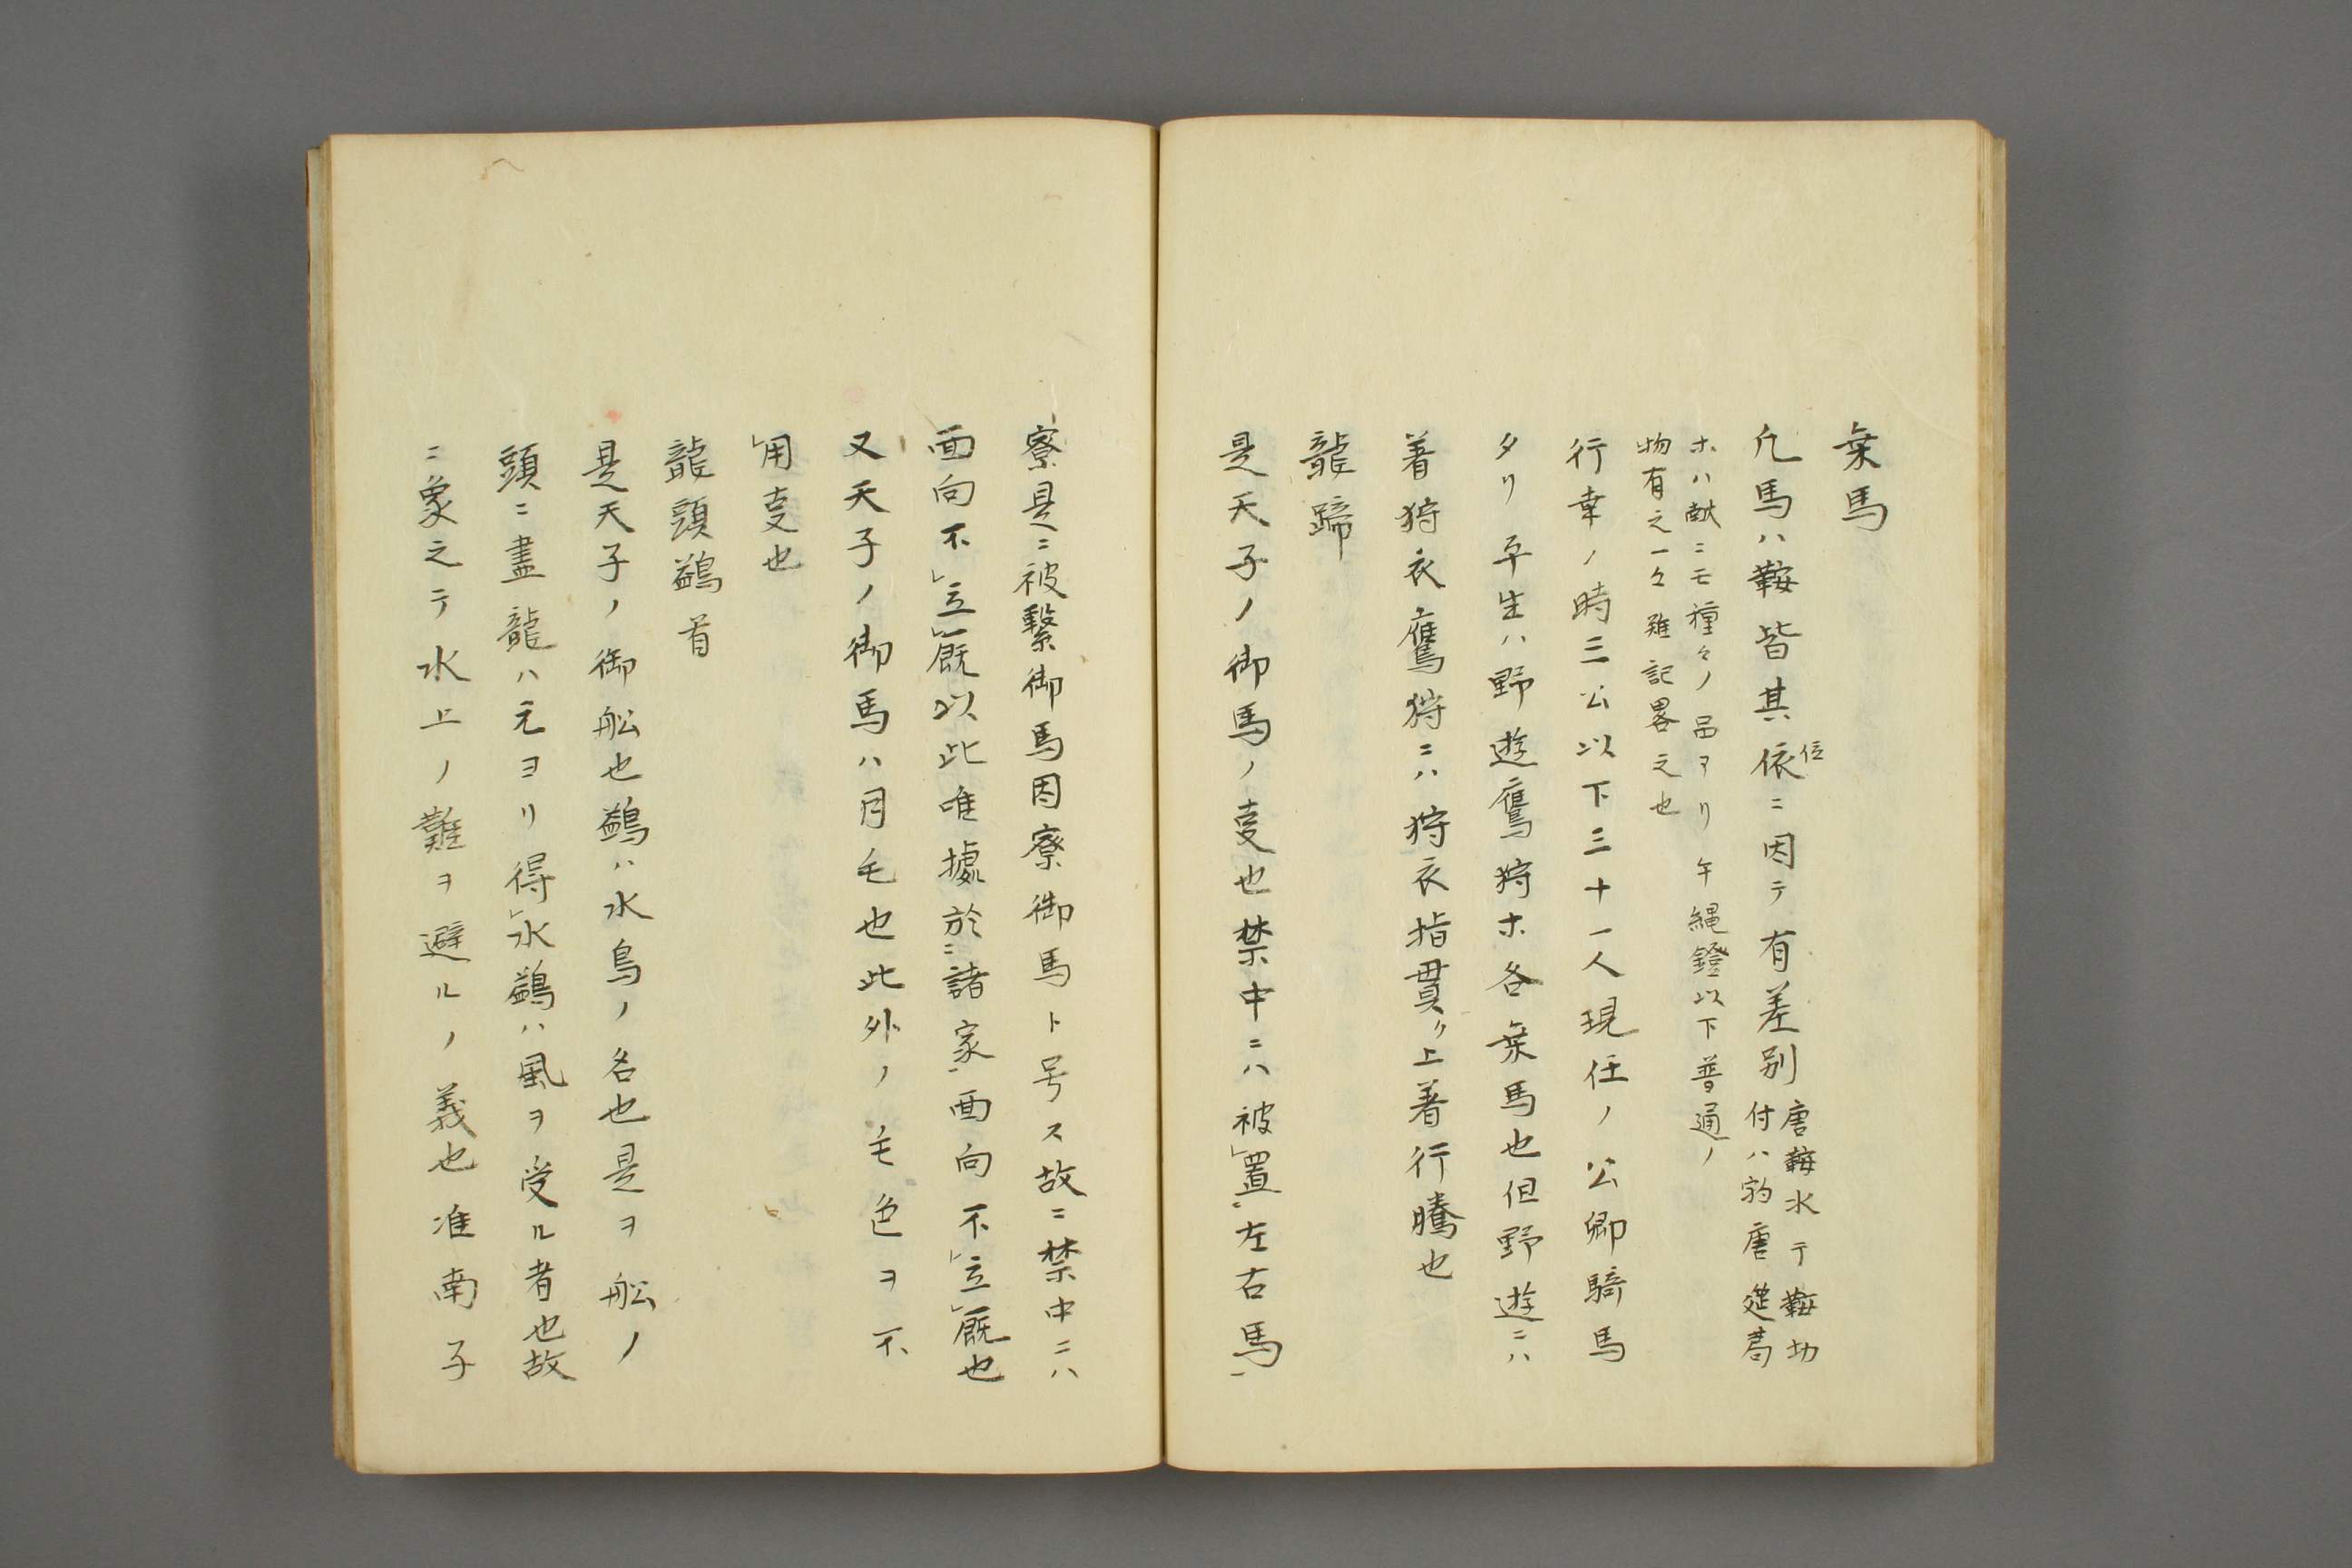 乗馬
凢馬ハ鞍皆其依位ニ因テ有差別
唐鞍水テ鞍切
付ハ豹唐莚葛
ホハ献ニモ種々ノ品ヲリ 午縄鐙以下普通ノ
物有之一々難記畧之也
行幸ノ時三公以下三十一人現任ノ公卿騎馬
タリ平生ハ野遊鷹狩ホ各乗馬也但野遊ニハ
着狩衣鷹狩ニハ狩衣指貫ノ上着行騰也
龍蹄
是天子ノ御馬ノ㕝也禁中ニハ被置左右馬
寮是ニ被繋御馬因寮御馬ト号ス故ニ禁中ニハ
面向不立厩以此唯據於諸家面向不立厩也
又天子ノ御馬ハ月毛也此外ノ毛色ヲ不
用㕝也
龍頭鷁首
是天子ノ御舩也鷁ハ水鳥ノ名也是ヲ舩ノ
頭ニ畫龍ハ元ヨリ得水鷁ハ風ヲ受ル者也故
ニ象之テ水上ノ難ヲ避ルノ義也准南子